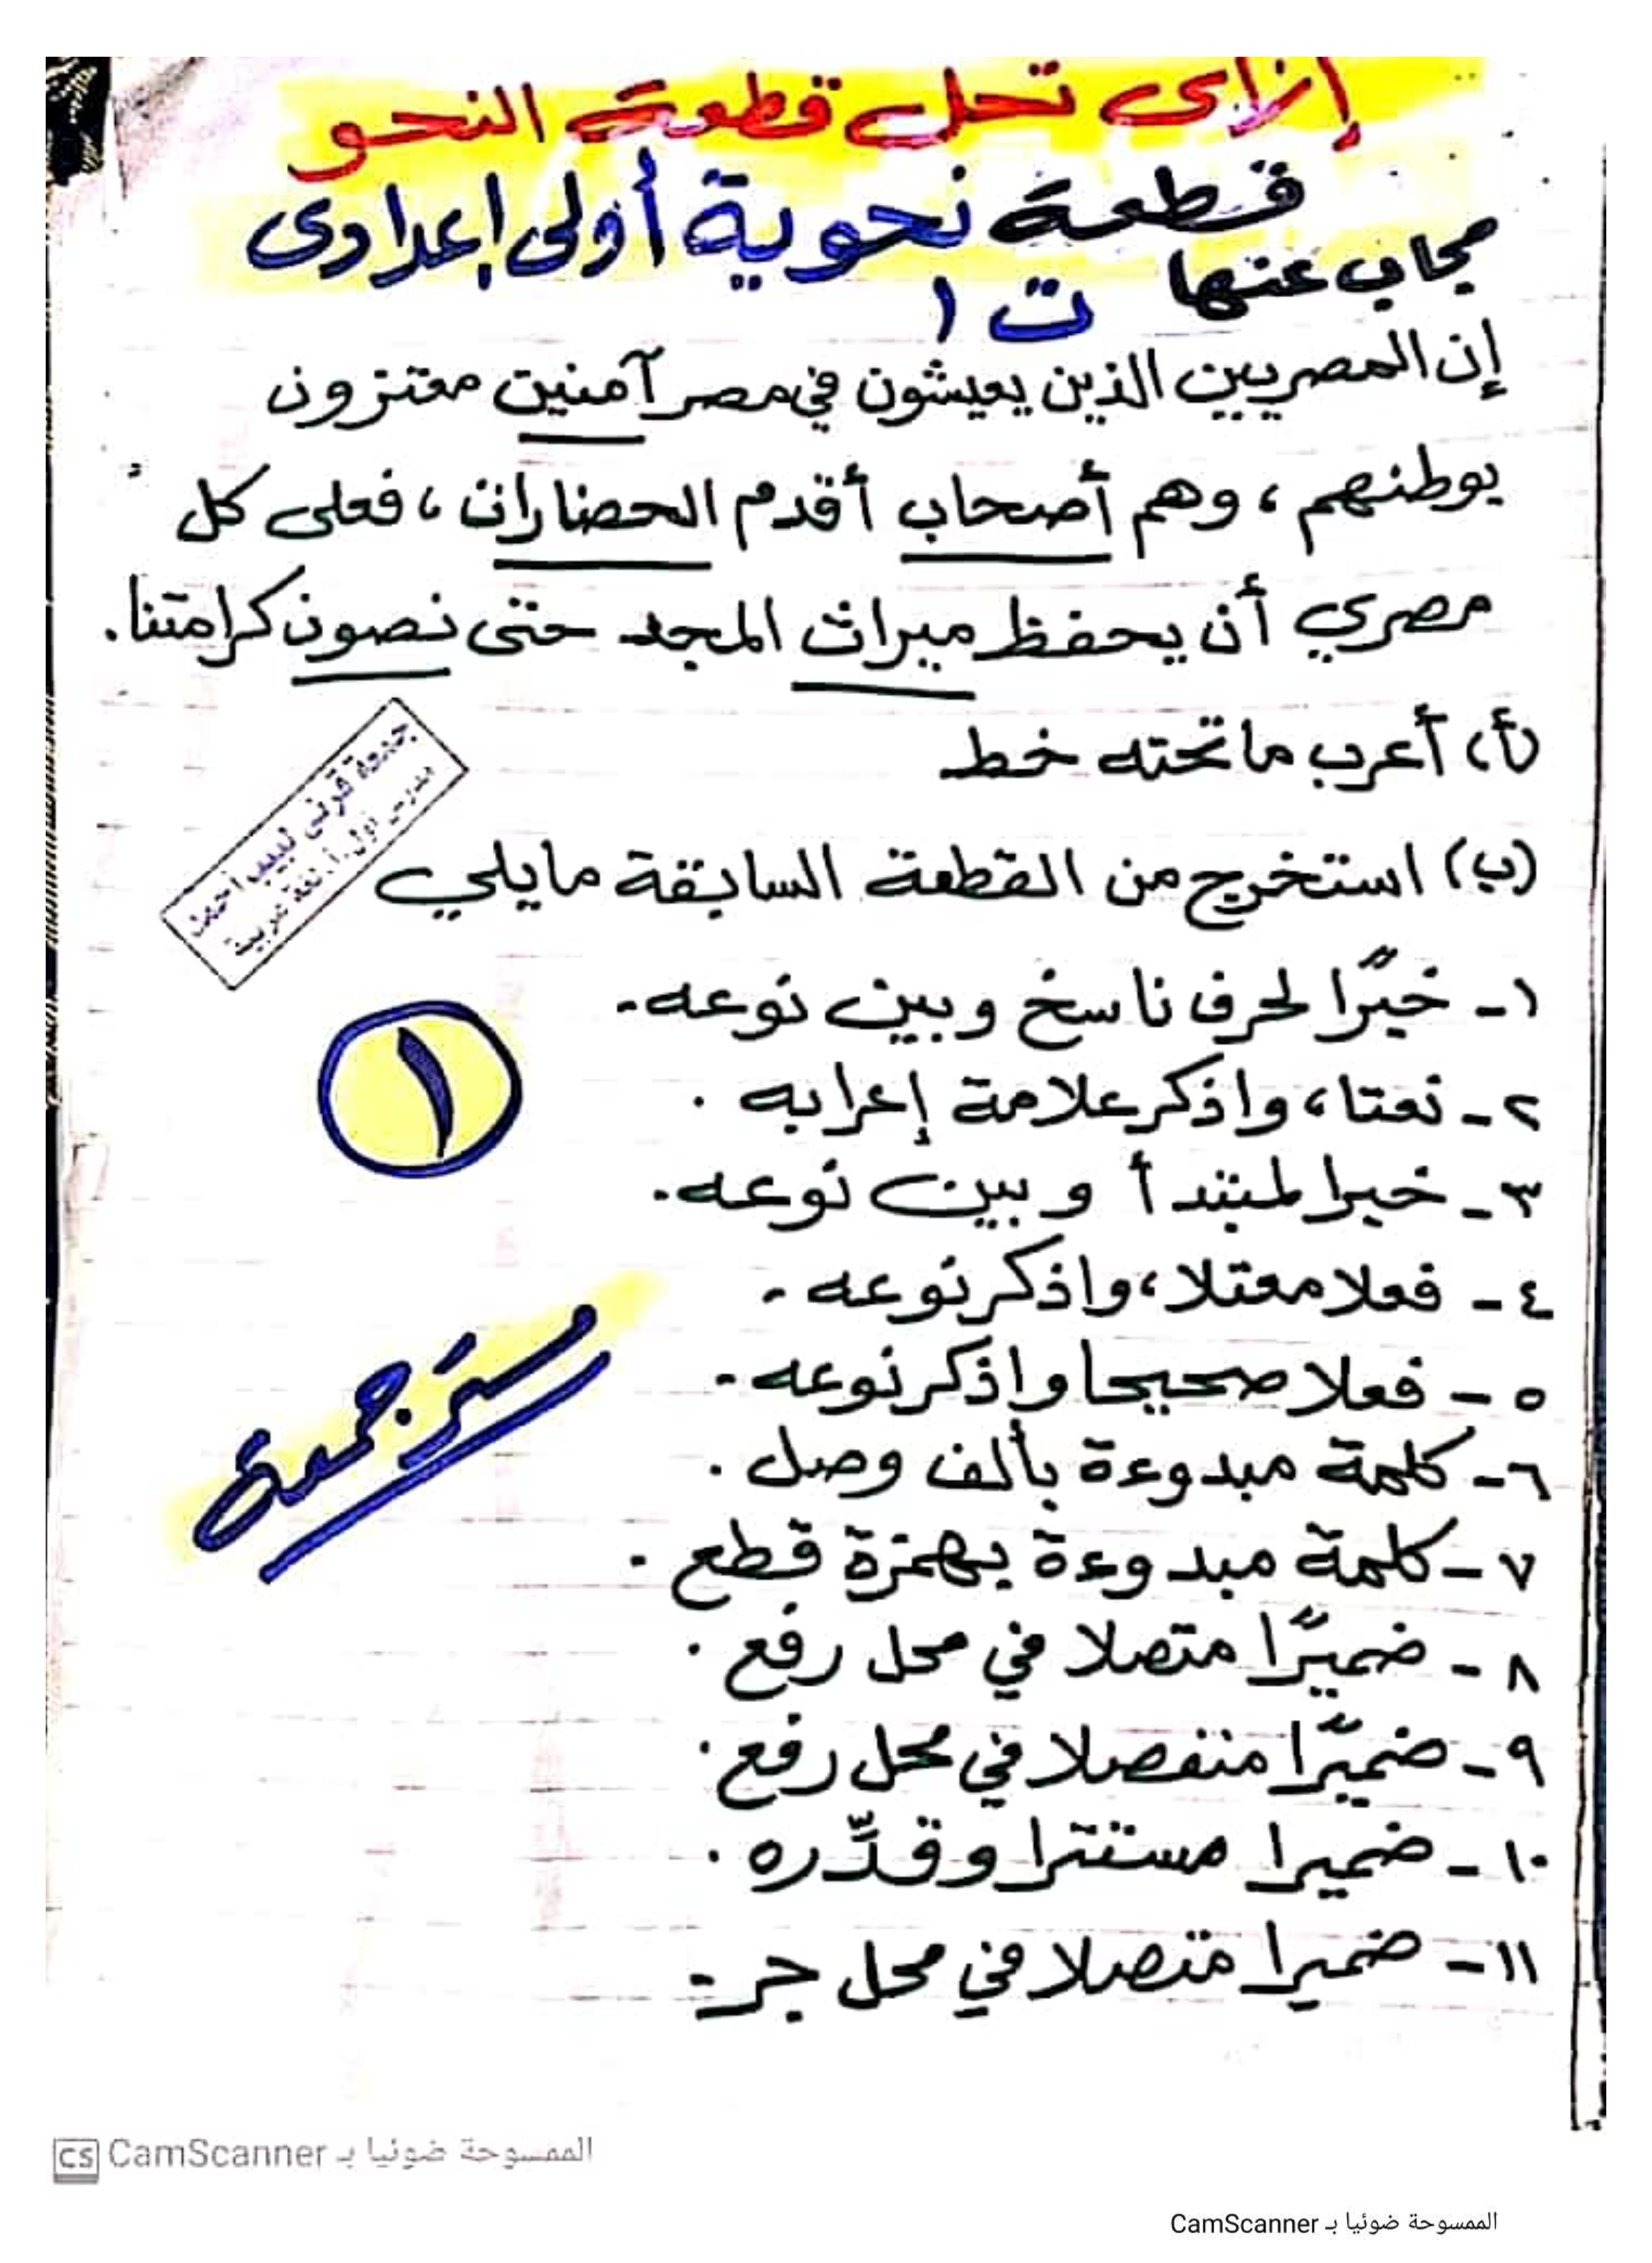 إزاى تحل قطعة النحو
قطعة نحوية أولى إعدادى
مجاب عنها ت ١
إن المصريين الذين يعيشون في مصر آمنين معتزون
بوطنهم، وهم أصحاب أقدم الحضارات، فعلى كل
مصري أن يحفظ ميراث المجد حتى نصون كرامتنا.
(أ) أعرب ما تحته خط
جمعة قرنى لبيب
(ب) استخرج من القطعة السابقة ما يلي
١- خبرًا لحرف ناسخ وبين نوعه.
٢- نعتا، واذكر علامة إعرابه.
١
٣- خبرا لمبتدأ وبين نوعه.
٤- فعلا معتلا، واذكر نوعه.
٥- فعلا صحيحا واذكر نوعه.
مستر جمعة
٦- كلمة مبدوءة بألف وصل.
٧- كلمة مبدوءة بهمزة قطع.
٨- ضميرًا متصلا في محل رفع.
٩- ضميرًا منفصلا في محل رفع.
١٠- ضميرا مستترا وقدِّره.
١١- ضميرا متصلا في محل جر.
CS CamScanner الممسوحة ضوئيا بـ
الممسوحة ضوئيا بـ CamScanner